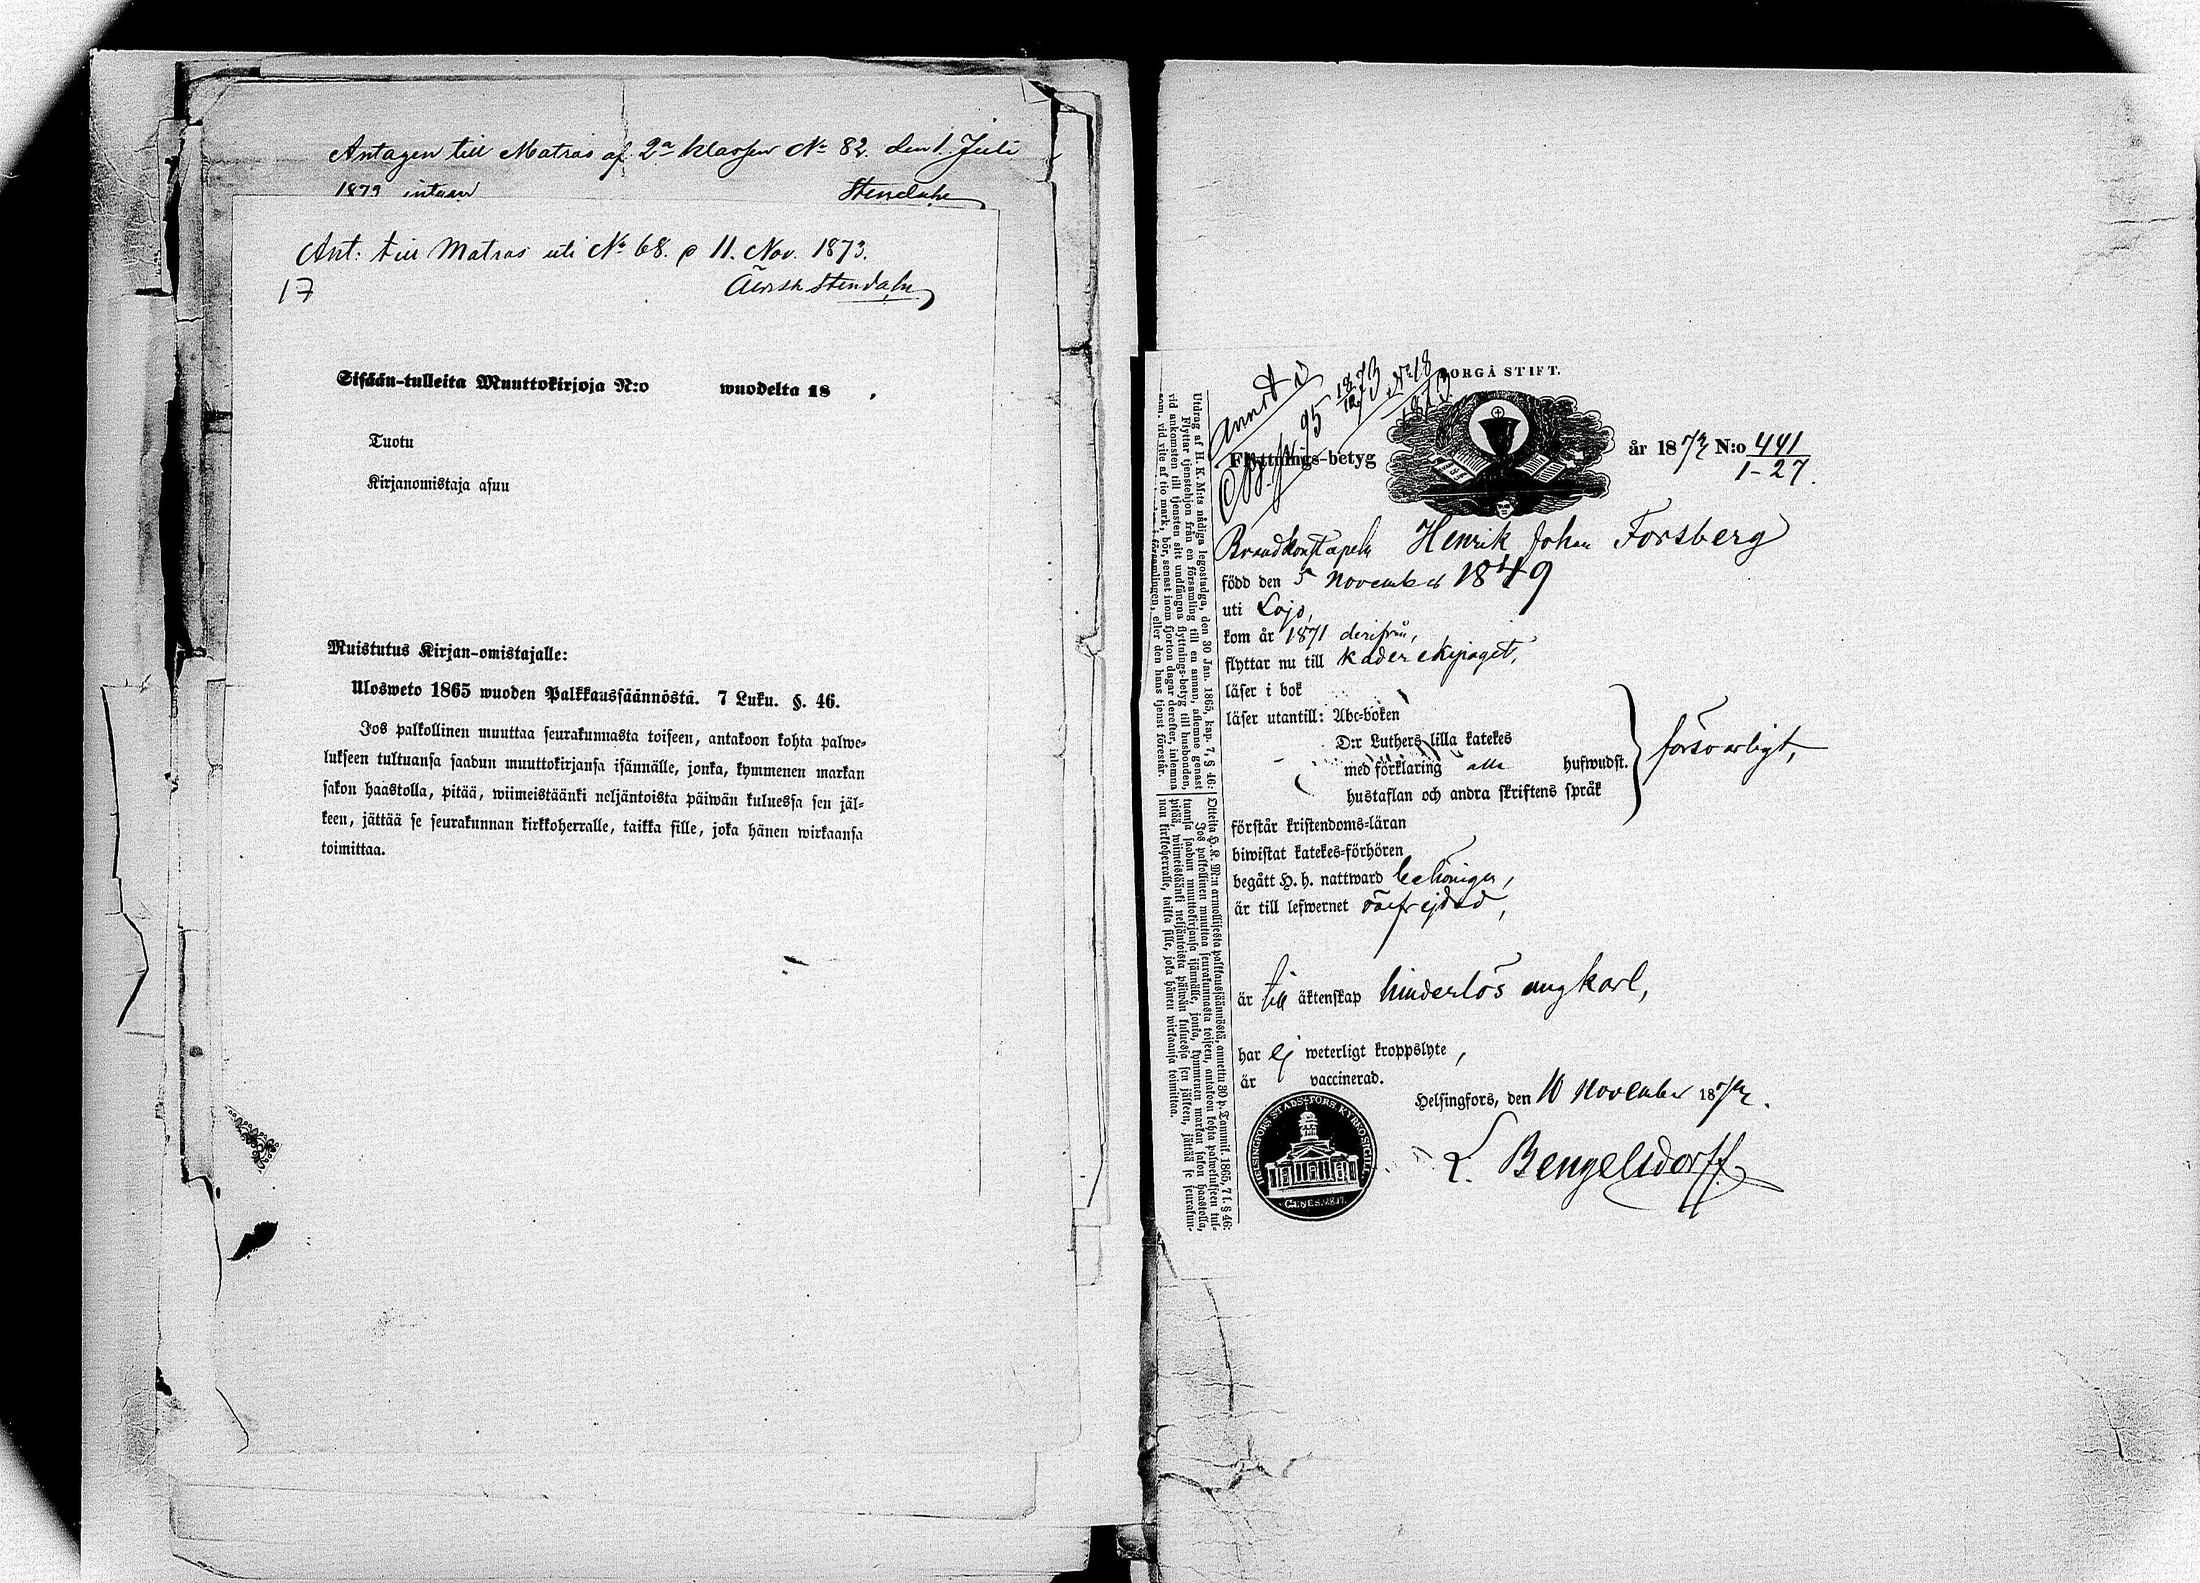 Antagen till Matros af 2a klassen No 82. den 1. Juli
1873
Stendahl
Ant: till Matros uti No 68. d 11. Nov. 1873.
17
Stendahl
Sisään-tulleita Muuttokirjoja N:o wuodelta 18 .
Tuotu
Kirjanomistaja asuu
Muistutus Kirjan-omistajalle:
Ulosweto 1865 wuoden Palkkaussäännöstä. 7 Luku. §. 46.
Jos palkollinen muuttaa seurakunnasta toiseen, antakoon kohta palwe-
lukseen tultuansa saadun muuttokirjansa isännälle, jonka, kymmenen markan
sakon haastolla, pitää, wiimeistäänki neljäntoista päiwän kuluessa sen jäl-
keen, jättää se seurakunnan kirkkoherralle, taikka sille, joka hänen wirkaansa
toimittaa.
BORGÅ STIFT.
No 18
1873
95
Flyttnings-betyg
år 1873 N:o 441
1-27.
Brandkonstapeln Henrik Johan Forsberg
född den 5 november 1849
uti Lojo,
kom år 1871 derifrån,
flyttar nu till kaderekipaget,
läser i bok
läser utantill: Abc-boken
D:r Luthers lilla katekes
med förklaring alla hufwudst.
hustaflan och andra skriftens språk
försvarligt,
förstår kristendoms-läran
biwistat katekes-förhören
begått H. h. nattward behörigen,
är till lefwernet oåefrejdad,
är till äktenskap hinderlös ungkarl,
har ej weterligt kroppslyte,
är vaccinerad.
Helsingfors, den 10 November 1873.
L. Bengelsdorff
HELSINGFORS STADS-FÖRS KYRKOSIGILL
Utdrag af H. K. M:ts nådiga legostadga, den 30 Jan. 1865, kap. 7, § 46:
Flyttar tjenstehjon från en församling till en annan, aflemne genast
vid ankomsten till tjensten sitt undfångna flyttnings-betyg till husbonden,
som, vid wite af tio mark, bör, senast inom fjorton dagar derefter, inlemna
församlingen, eller den hans tjenst förestår.
Otteita H. K. M:n armollisesta palkkaussäännöstä, annettu 30 p. Tammik. 1865, 7 l. § 46:
Jos palkollinen muuttaa seurakunnasta toiseen, antakoon kohta palwelukseen tul-
tuansa saadun muuttokirjansa isännälle, jonka, kymmenen markan sakon haastolla,
pitää, wiimeistäänki neljäntoista päiwän kuluessa sen jälkeen, jättää se seurakun-
nan kirkkoherralle, taikka sille, joka hänen wirkaansa toimittaa.